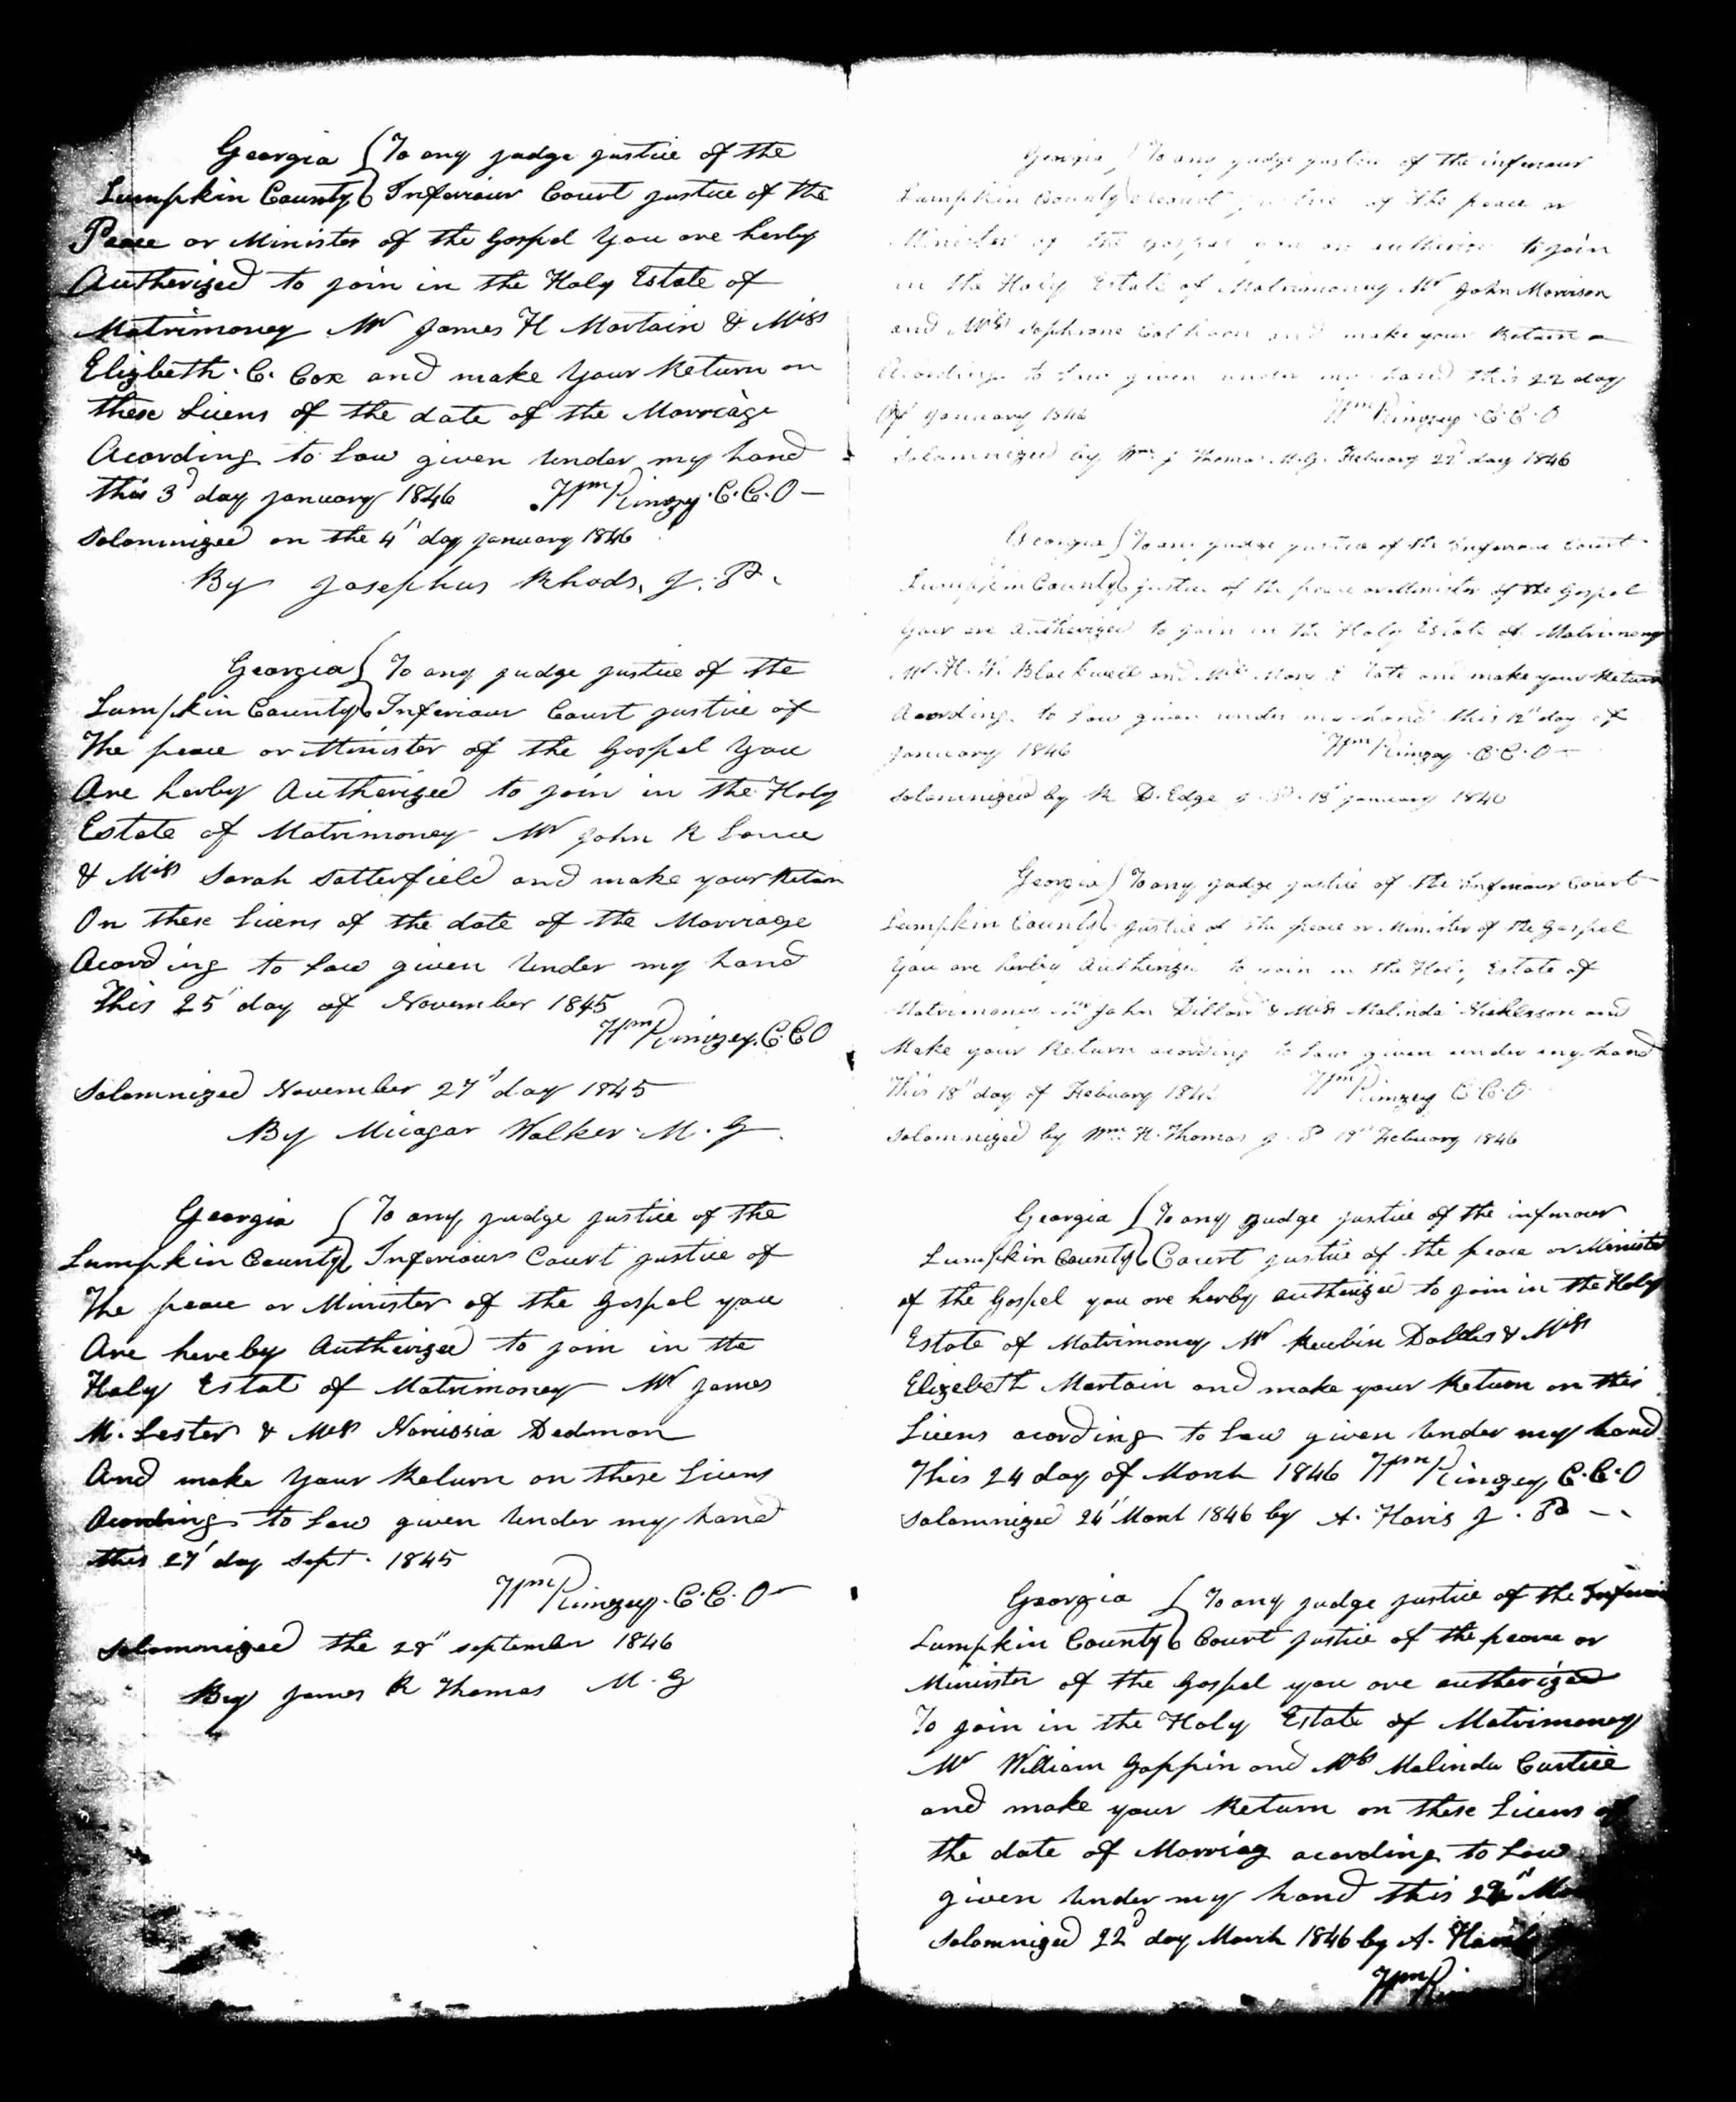 Georgia } To any judge justice of the
Lumpkin County } Inferiour Court justice of the
Peace or Minister of the Gospel You are herby
Autherized to join in the Holy Estate of
Matrimoney Mr James H Martain & Miss
Elizbeth C. Cox and make Your Return on
these Licens of the date of the Marriage
Acording to Law given under my hand
this 3d day january 1846 Wm Kimzey C.C.O
Solomnized on the 4th day january 1846
By Josephus Rhods, J. P.
Georgia } To any judge justice of the
Lumpkin County } Inferiour Court justice of
The peace or Minister of the Gospel You
Are herby Autherized to join in the Holy
Estate of Matrimoney Mr John R
& Miss Sarah Satterfield and make your Return
On these Licens of the date of the Marriage
Acording to Law given under my hand
This 25 day of November 1845
Wm Kimzey C.C.O
Solomnized November 27th day 1845
By Walker M. G
Georgia } To any judge justice of the
Lumpkin County } Inferiour Court justice of
The peace or Minister of the Gospel you
Are hereby Autherized to join in the
Holy Estat of Matrimoney Mr James
M. Lester & Miss Narcissia Dedmon
And make Your Return on these Licens
Acording to Law given under my hand
this 27 day Sept. 1845
Wm Kimzey C.C.O
Solomnized the 28th september 1846
By James R Thomas M. G
Georgia } To any judge justice of the inferiour
Lumpkin County } Court justice of the peace or
Minister of the gospel you are autherise to join
in the Holy Estate of Matrimoney Mr John Morrison
and Miss Sophrone Calhoun and make your Return
Acording to Law given under my hand this 22 day
Of january 1846 Wm Kimzey C.C.O
Solomnized by Wm J Thomas M.G. Febuary 22d day 1846
Georgia } To any judge justice of the Inferiour Court
Lumpkin County } justice of the peace or Minister of the Gospel
Your are Autherized to join in the Holy Estate of Matrimoney
Mr H. W. Blackwell and Miss Mary Tate and make your Return
Acording to Law given under my hand this 12th day of
january 1846 Wm Kimzey C.C.O
Solomnized by R D. Edge J. P. 13th january 1846
Georgia } To any judge justice of the Inferiour Court
Lumpkin County } justice of the peace or Minister of the Gospel
You are herby Autherize to join in the Holy Estate of
Matrimoney Mr John Dillard & Miss Malinda Nickerson and
Make your Return acording to Law given under my hand
This 18th day of Febuary 1846 Wm Kimzey C.C.O
Solomnized by Wm H. Thomas J. P 19th Febuary 1846
Georgia } To any judge justice of the inferiour
Lumpkin County } Court justice of the peace or Minister
of the Gospel you are herby autherized to join in the Holy
Estate of Matrimoney Mr Reubin & Miss
Elizebeth Martain and make your Return on this
Licens acording to Law given under my hand
This 24 day of March 1846 Wm Kimzey C.C.O
Solomnized 24th 1846 by A. Haris J. P
Georgia } To any judge justice of the
Lumpkin County } Court justice of the peace or
Minister of the Gospel you are autherized
To join in the Holy Estate of Matrimoney
Mr William Gappin and Miss Malinda Curtice
and make your Return on these Licens of
the date of Marriag acording to Law
given under my hand this
Solomnized 22d day March 1846 by A.
Wm